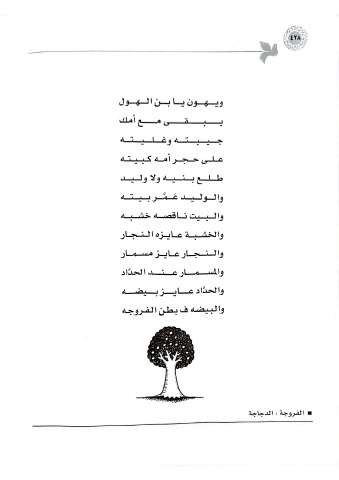 ٤٢٨
ويهون يا بن الهول
يبقى مع أمك
جيبته وغليته
على حجر أمه كبيته
طلع بنيه ولا وليد
والوليد عمَّر بيته
والبيت ناقصه خشبه
والخشبة عايزه النجار
والنجار عايز مسمار
والمسمار عند الحدّاد
والحدّاد عايز بيضه
والبيضه ف بطن الفروجه
■ الفروجة : الدجاجة